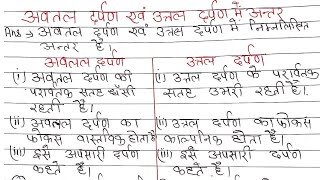 अवतल दर्पण एवं उत्तल दर्पण में अन्तर
Ans → अवतल दर्पण एवं उत्तल दर्पण में निम्नलिखित
अन्तर है।
अवतल दर्पण
उत्तल दर्पण
(i) अवतल दर्पण की
परावर्तक सतह धँसी
रहती है।
(i) उत्तल दर्पण के परावर्तक
सतह उभरी रहती है।
(ii) अवतल दर्पण का
फोकस वास्तविक होता है
(ii) उत्तल दर्पण का फोकस
काल्पनिक होता है।
(iii) इसे अपसारी दर्पण
कहते है।
(iii) इसे अपसारी दर्पण
कहते है।